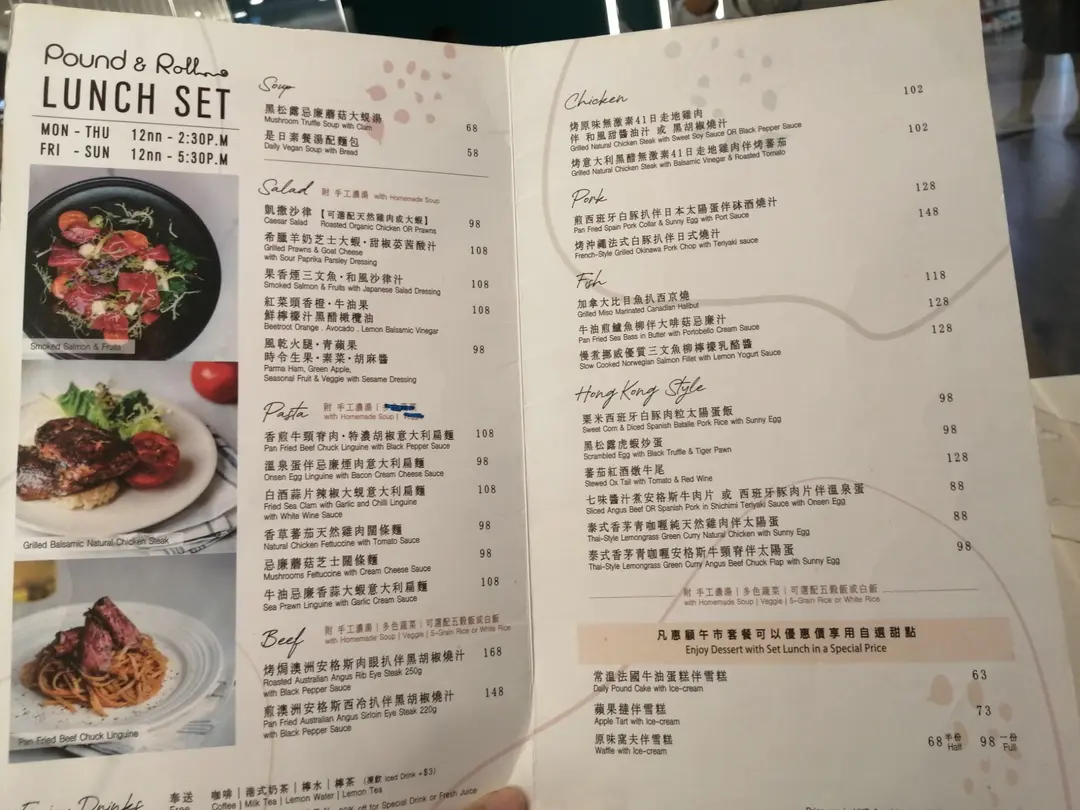 Pound & Roll
LUNCH SET
MON - THU 12nn - 2:30P.M
FRI - SUN 12nn - 5:30P.M
Smoked Salmon & Fruits
Grilled Balsamic Natural Chicken Steak
Pan Fried Beef Chuck Linguine
Soup
黑松露忌廉蘑菇大蜆湯
Mushroom Truffle Soup with Clam 68
是日素餐湯配麵包
Daily Vegan Soup with Bread 58
Salad 附 手工濃湯 with Homemade Soup
凱撒沙律【可選配天然雞肉或大蝦】
Caesar Salad Roasted Organic Chicken OR Prawns 98
希臘羊奶芝士大蝦・甜椒荽茜酸汁
Grilled Prawns & Goat Cheese 108
with Sour Paprika Parsley Dressing
果香煙三文魚・和風沙律汁
Smoked Salmon & Fruits with Japanese Salad Dressing 108
紅菜頭香橙・牛油果
鮮檸檬汁黑醋橄欖油 108
Beetroot Orange . Avocado . Lemon Balsamic Vinegar
風乾火腿・青蘋果
時令生果・素菜・胡麻醬 98
Parma Ham, Green Apple,
Seasonal Fruit & Veggie with Sesame Dressing
Pasta 附 手工濃湯 |
with Homemade Soup |
香煎牛頸脊肉・特濃胡椒意大利扁麵 108
Pan Fried Beef Chuck Linguine with Black Pepper Sauce
溫泉蛋伴忌廉煙肉意大利扁麵 98
Onsen Egg Linguine with Bacon Cream Cheese Sauce
白酒蒜片辣椒大蜆意大利扁麵 108
Fried Sea Clam with Garlic and Chilli Linguine
with White Wine Sauce
香草蕃茄天然雞肉闊條麵 98
Natural Chicken Fettuccine with Tomato Sauce
忌廉蘑菇芝士闊條麵 98
Mushrooms Fettuccine with Cream Cheese Sauce
牛油忌廉香蒜大蝦意大利扁麵 108
Sea Prawn Linguine with Garlic Cream Sauce
Beef 附 手工濃湯 | 多色蔬菜 | 可選配五穀飯或白飯
with Homemade Soup | Veggie | 5-Grain Rice or White Rice
烤焗澳洲安格斯肉眼扒伴黑胡椒燒汁 168
Roasted Australian Angus Rib Eye Steak 250g
with Black Pepper Sauce
煎澳洲安格斯西冷扒伴黑胡椒燒汁 148
Pan Fried Australian Angus Sirloin Eye Steak 220g
with Black Pepper Sauce
Drinks 奉送 咖啡 | 港式奶茶 | 檸水 | 檸茶 (凍飲 Iced Drink +$3)
Free Coffee | Milk Tea | Lemon Water | Lemon Tea
off for Special Drink or Fresh Juice
Chicken
烤原味無激素41日走地雞肉 102
伴 和風甜醬油汁 或 黑胡椒燒汁
Grilled Natural Chicken Steak with Sweet Soy Sauce OR Black Pepper Sauce
烤意大利黑醋無激素41日走地雞肉伴烤蕃茄 102
Grilled Natural Chicken Steak with Balsamic Vinegar & Roasted Tomato
Pork
煎西班牙白豚扒伴日本太陽蛋伴砵酒燒汁 128
Pan Fried Spain Pork Collar & Sunny Egg with Port Sauce
烤沖繩法式白豚扒伴日式燒汁 148
French-Style Grilled Okinawa Pork Chop with Teriyaki sauce
Fish
加拿大比目魚扒西京燒 118
Grilled Miso Marinated Canadian Halibut
牛油煎鱸魚柳伴大啡菇忌廉汁 128
Pan Fried Sea Bass in Butter with Portobello Cream Sauce
慢煮挪威優質三文魚柳檸檬乳酪醬 128
Slow Cooked Norwegian Salmon Fillet with Lemon Yogurt Sauce
Hong Kong Style
粟米西班牙白豚肉粒太陽蛋飯 98
Sweet Corn & Diced Spanish Batalle Pork Rice with Sunny Egg
黑松露虎蝦炒蛋 98
Scrambled Egg with Black Truffle & Tiger Pawn
蕃茄紅酒燉牛尾 128
Stewed Ox Tail with Tomato & Red Wine
七味醬汁煮安格斯牛肉片 或 西班牙豚肉片伴溫泉蛋 88
Sliced Angus Beef OR Spanish Pork in Shichimi Teriyaki Sauce with Onsen Egg
泰式香茅青咖喱純天然雞肉伴太陽蛋 88
Thai-Style Lemongrass Green Curry Natural Chicken with Sunny Egg
泰式香茅青咖喱安格斯牛頸脊伴太陽蛋 98
Thai-Style Lemongrass Green Curry Angus Beef Chuck Flap with Sunny Egg
附 手工濃湯 | 多色蔬菜 | 可選配五穀飯或白飯
with Homemade Soup | Veggie | 5-Grain Rice or White Rice
凡惠顧午市套餐可以優惠價享用自選甜點
Enjoy Dessert with Set Lunch in a Special Price
常溫法國牛油蛋糕伴雪糕 63
Daily Pound Cake with Ice-cream
蘋果撻伴雪糕 73
Apple Tart with Ice-cream
原味窩夫伴雪糕 68 半份 Half 98 一份 Full
Waffle with Ice-cream